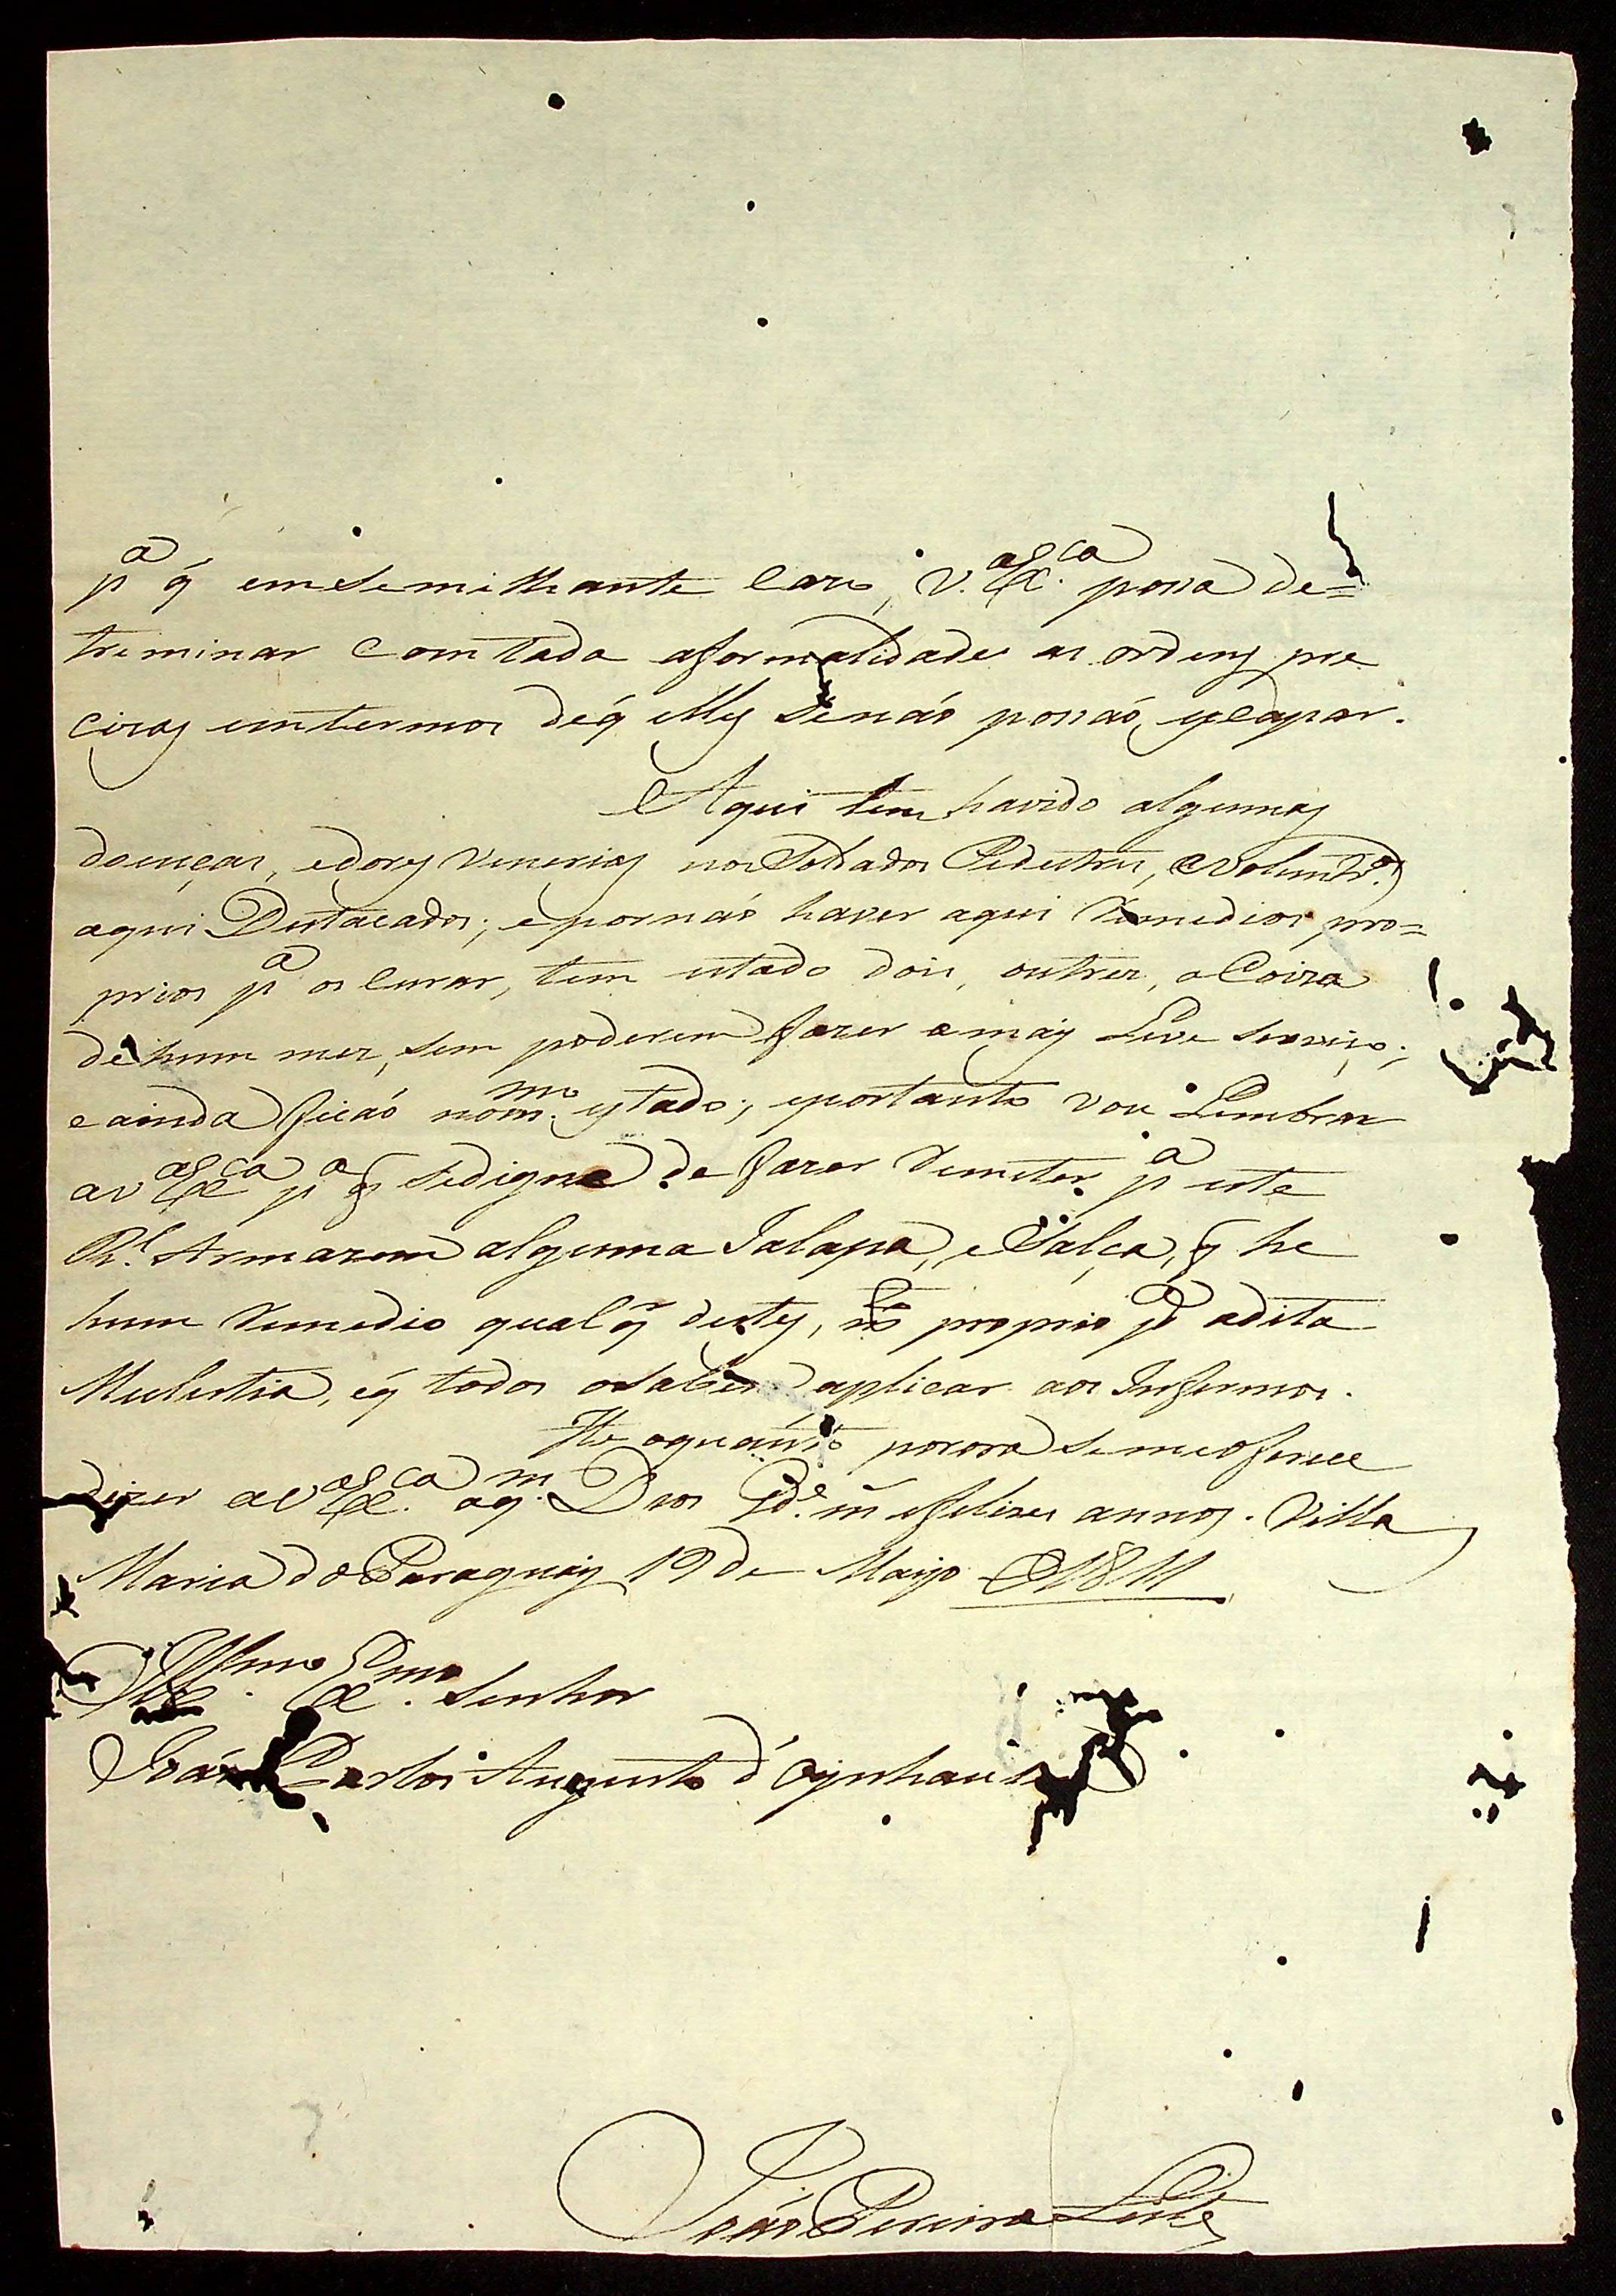 p.ª q̃ em semilhante cazo, V. Ex.ca possa de=
treminar com toda aformalidade as ordens pre
cizas emtermos deq̃ elles senáo possáo, escapar.
Aqui tem havido algumas
doenças, edores venerias nos Soldados Pedestres, eVolunt.os
aqui Destacados; epornáo haver aqui remedios pro=
prios p.ª os curar, tem estado dois, outres, a Coiza
de hum mez, sem poderem fazer omais Leve serviço;
eainda ficáo nom.mo estado; eportanto vou Lembrar
aV Ex.ca p.ª q̃ sedigne de fazer remeter p.ª este
R.l Armazem alguma Jalapa, e Salça, q̃ he
hum remedio qualq̃r destes, proprio p.ª adita
Mulestia, eq̃ todos osabem aplicar aos Infermos.
He oquanto porora semeoferece
dizer aV Ex.ca aq.m Deos G.de m.s efelizes annos. Villa
Maria do Paraguay 19 de Mayo d 1811
Ill.mo Ex.mo Senhor
Joáo Carlos Augusto d'Oynhausen
Joáo Pereira Leite